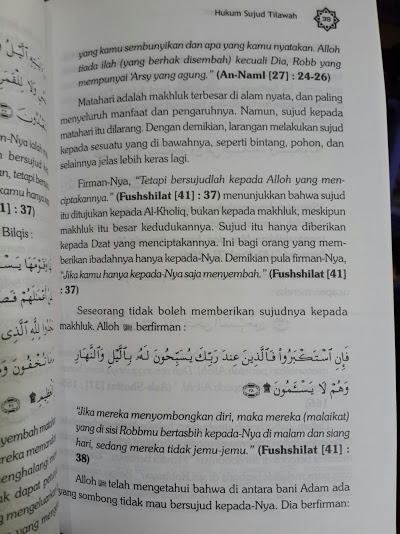 Hukum Sujud Tilawah
35
yang kamu sembunyikan dan apa yang kamu nyatakan. Alloh
tiada ilah (yang berhak disembah) kecuali Dia, Robb yang
mempunyai 'Arsy yang agung." (An-Naml [27] : 24-26)
Matahari adalah makhluk terbesar di alam nyata, dan paling
menyeluruh manfaat dan pengaruhnya. Namun, sujud kepada
matahari itu dilarang. Dengan demikian, larangan melakukan sujud
kepada sesuatu yang di bawahnya, seperti bintang, pohon, dan
selainnya jelas lebih keras lagi.
Firman-Nya, "Tetapi bersujudlah kepada Alloh yang men-
ciptakannya." (Fushshilat [41] : 37) menunjukkan bahwa sujud
itu ditujukan kepada Al-Kholiq, bukan kepada makhluk, meskipun
makhluk itu besar kedudukannya. Sujud itu hanya diberikan
kepada Dzat yang menciptakannya. Ini bagi orang yang mem-
berikan ibadahnya hanya kepada-Nya. Demikian pula firman-Nya,
"Jika kamu hanya kepada-Nya saja menyembah." (Fushshilat [41]
: 37)
Seseorang tidak boleh memberikan sujudnya kepada
makhluk. Alloh ﷻ berfirman :
فَإِنِ اسْتَكْبَرُوا فَالَّذِينَ عِندَ رَبِّكَ يُسَبِّحُونَ لَهُ بِاللَّيْلِ وَالنَّهَارِ
وَهُمْ لَا يَسْئَمُونَ ۩ ٣٨
"Jika mereka menyombongkan diri, maka mereka (malaikat)
yang di sisi Robbmu bertasbih kepada-Nya di malam dan siang
hari, sedang mereka tidak jemu-jemu." (Fushshilat [41] :
38)
Alloh ﷻ telah mengetahui bahwa di antara bani Adam ada
yang sombong tidak mau bersujud kepada-Nya. Dia berfirman: